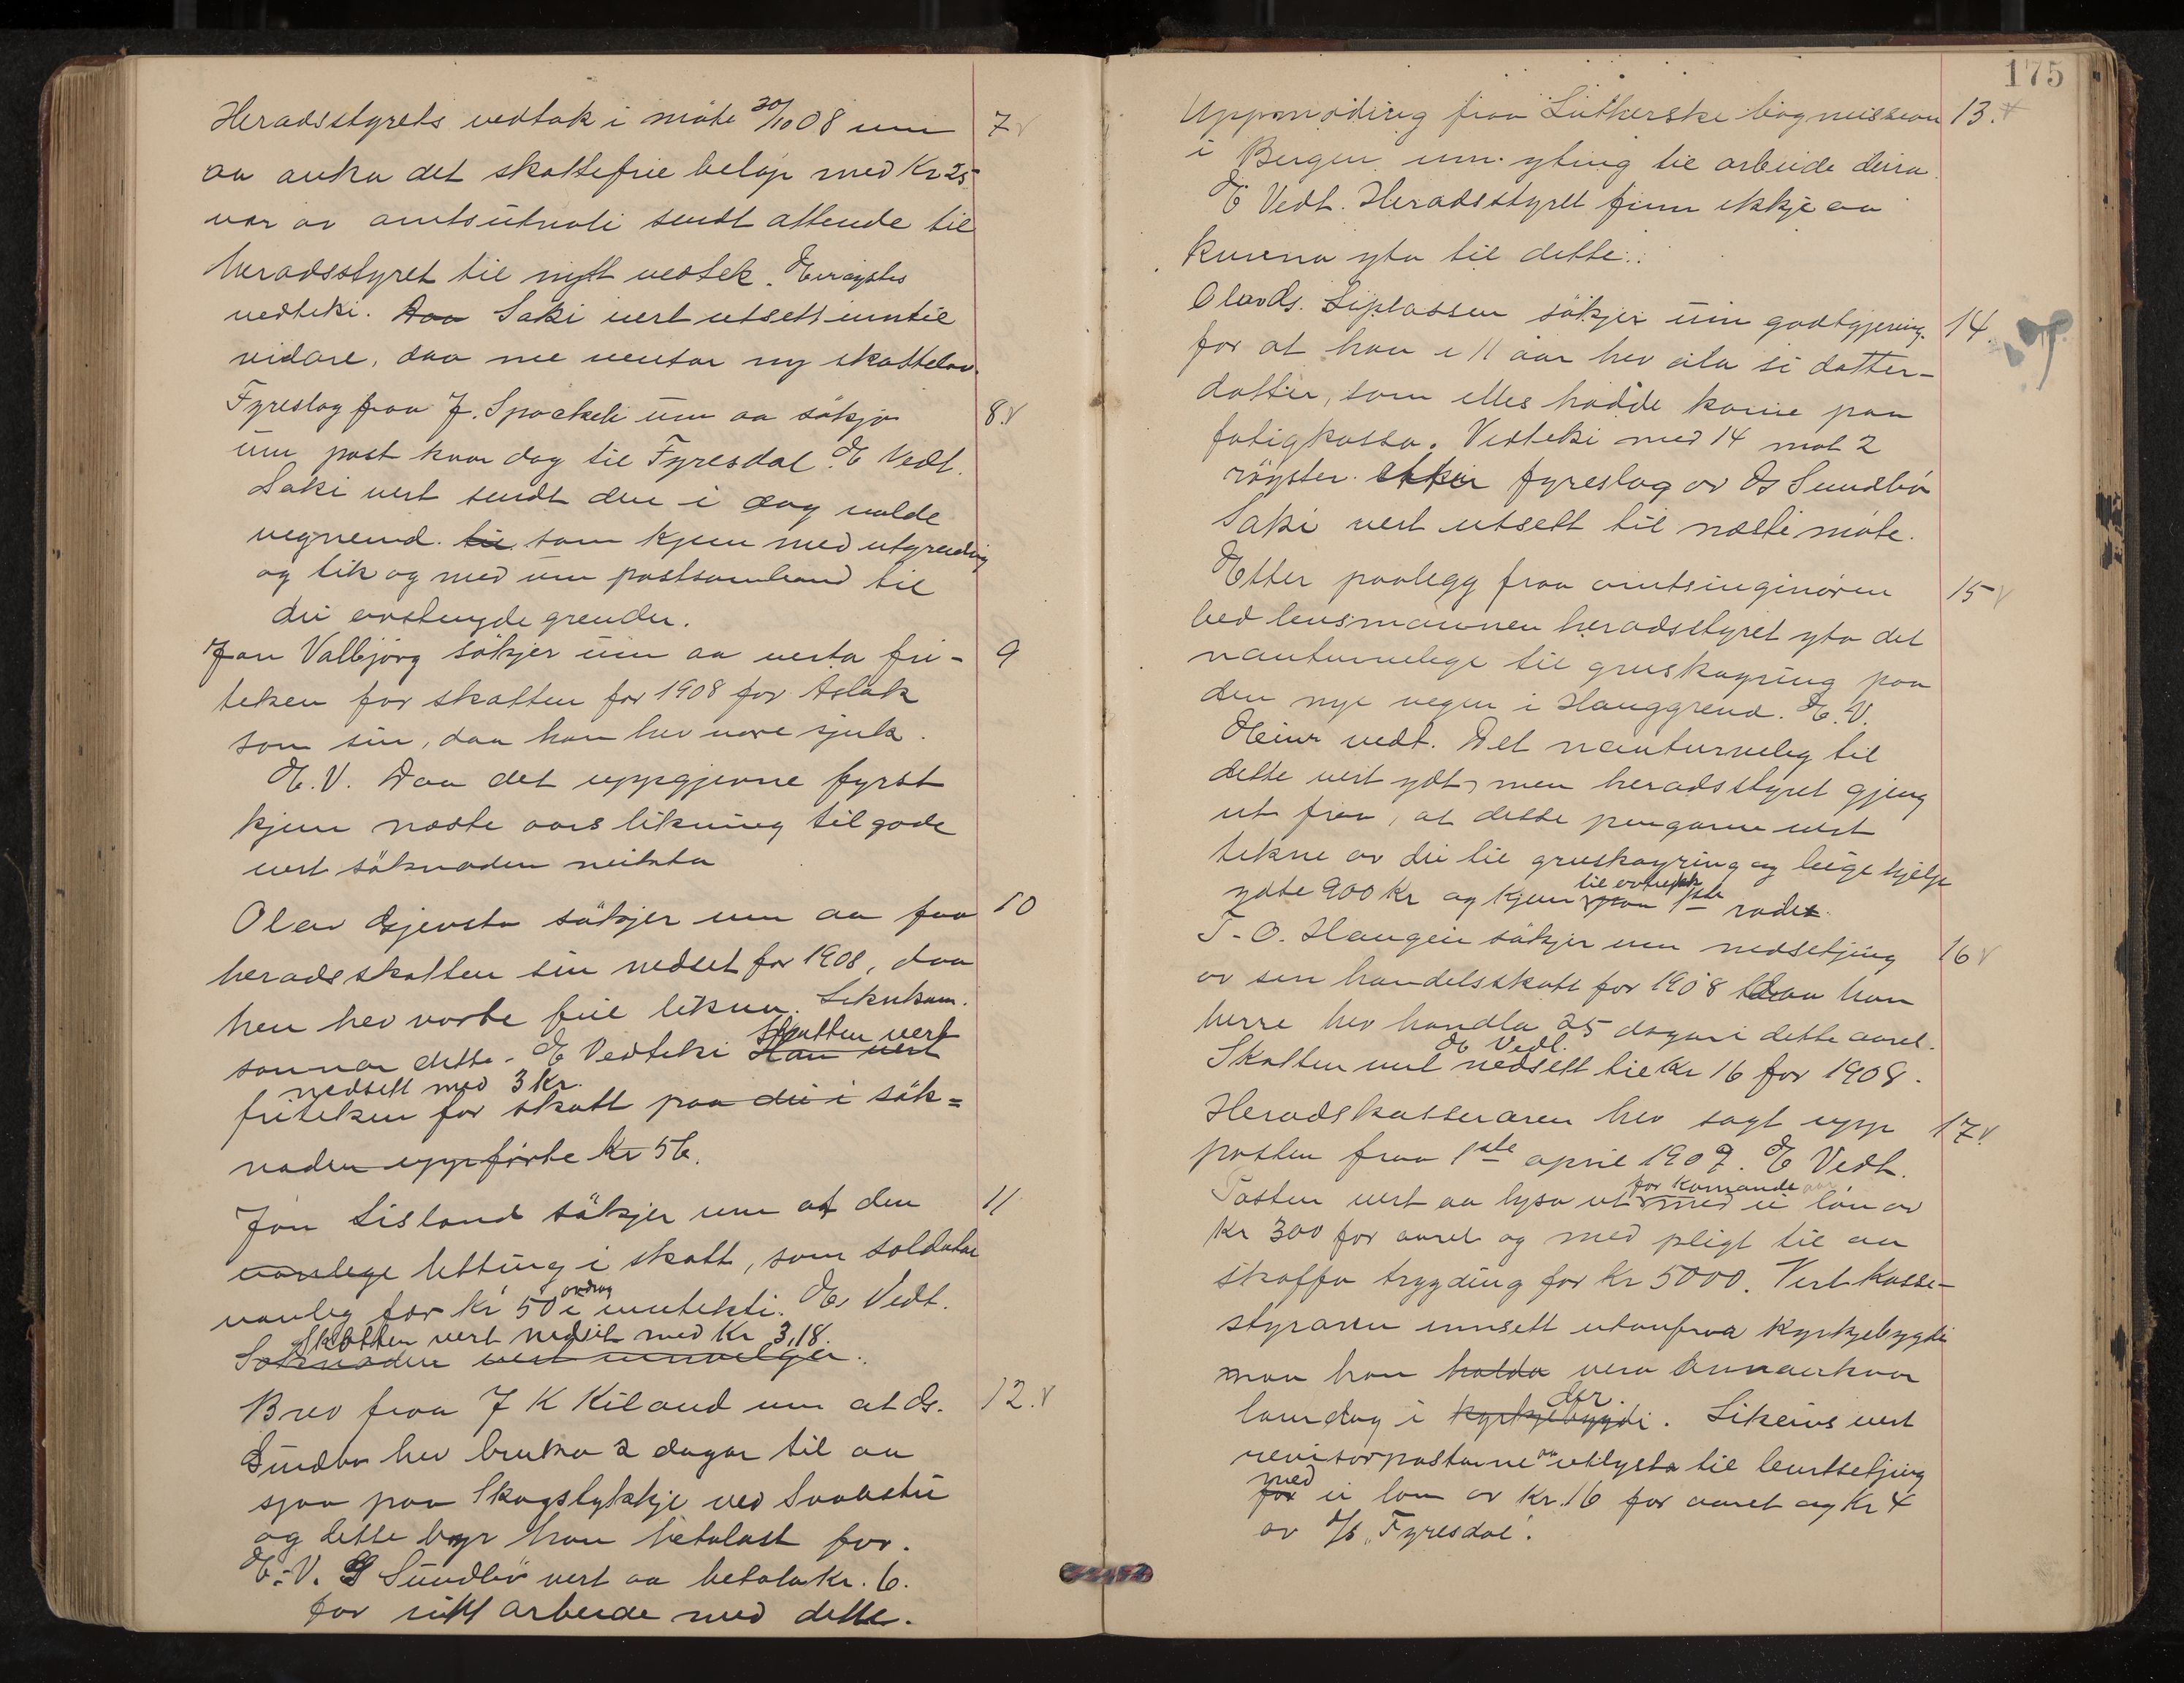 Heradsstyrets vedtak i möte 30/10 08 um 7
aa auka det skattefrie beløp med Kr 25
var av amtsutvali sendt attende til
heradsstyret til nytt vedtek. Einrøystes
vedteki. Daa Saki vert utsett inntil
vidare, daa me ventar ny skattelov.
Fyreslag fraa J. Spockeli um aa søkja 8.
um post kvar dag til Fyresdal. E Vedt.
Saki vert sendt den i dag valde
vegnemd. til som kjem med utgreiding
og lik og med um postsamband til
dei avstengde grender.
Jon Valbjörg søkjer um aa verta fri- 9
teken for skatten for 1908 for Aslak
son sin, daa han hev vore sjuk.
E. V. Daa det uppgjevne fyrst
kjem næste aars likning tilgode
vert søknaden neitta
Olav Gjevsta søkjer um aa faa 10
heradsskatten sin nedset for 1908, daa
han hev vorte feil likna. Liknkom.
sannar dette. E Vedteki Skatten vert Han vert
nedsett med 3 Kr.
friteken for skatt paa dei i søk=
naden uppførte Kr 56.
Jon Lisland søkjer um at den 11
vanlege letting i skatt, som soldatar
vanleg fær Kr 50 i avdrag inntekti. E. Vedt.
Skatten vert nedsett med Kr 3,18.
Søknaden vert innvelga.
Brev fraa J K Kiland um at Ds. 12.
Sundbø hev bruka 2 dagar til aa
sjaa paa Skogstykkje ved
og dette bør han betalast for.
E. V. S Sundbø vert aa betala Kr. 6.
for sitt arbeide med dette.
175
Uppmoding fraa Lutherske bogmission 13.
i Bergen um yting til arbeide deira.
E Vedt. Heradsstyret finn ikkje aa
kunna yta til dette.
Olav Ds. Liplassen søkjer um godtgjering. 14.
for at han i 11 aar hev ala si dotter-
dotter, som elles hadde kome paa
fatigkassa. Vedteki med 14 mot 2
røyster. etter fyreslag av Ds Sundbø
Saki vert utsett til næste møte.
Etter paalegg fraa amtsingeniøren 15
bed lensmannen heradsstyret yta det
nauturvelege til gruskøyring paa
den nye vegen i Hauggrend. E. V.
Einr vedt. Det nauturveleg til
dette vert ydt, men heradsstyret gjeng
ut fraa, at desse pengarne vert
tekne av dei til gruskøyring og leige hjelp
ydte 900 Kr og kjem til avtrekk paa 1ste rode.
T. O. Haugen søkjer um nedsetjing 16
av sin handelsskatt for 1908 daa han
berre hev handla 25 dagar i dette aaret.
E Vedt.
Skatten vert nedsett til Kr 16 for 1908.
Heradskasseraren hev sagt upp 17.
posten fraa 1ste april 1909. E Vedt.
Posten vert aa lysa ut for komande aar med ei løn av
Kr 300 for aaret og med pligt til aa
skaffa trygding for Kr 5000. Vert kasse-
styraren innsett utanfraa kyrkjebygdi
maa han halda vera annankvar
laurdag i kyrkjebygdi der. Likeins vert
revisorpostarne aa utlysta til besetjing
for med ei løn av Kr. 16 for aaret og Kr 4
av D/S "Fyresdal".